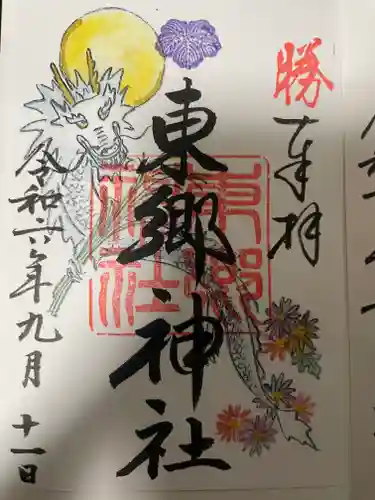 勝
奉拝
東郷神社
東郷神社
令和六年九月
十一日